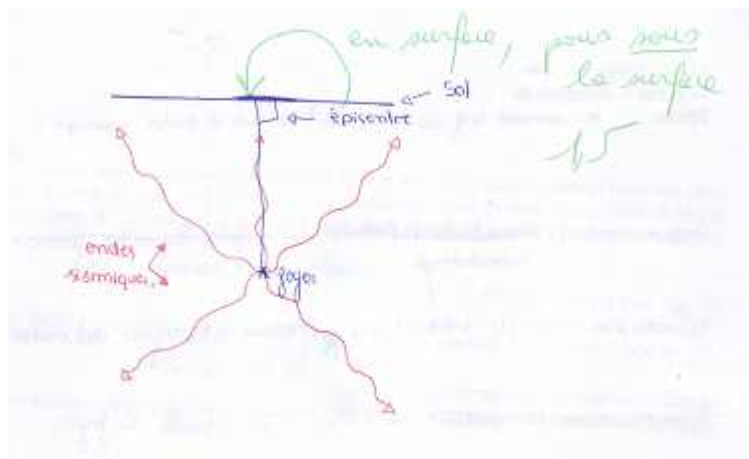 en surface, pous sous
la surface
Sol
épisentre
1,5
ondes
sismiques
foyer